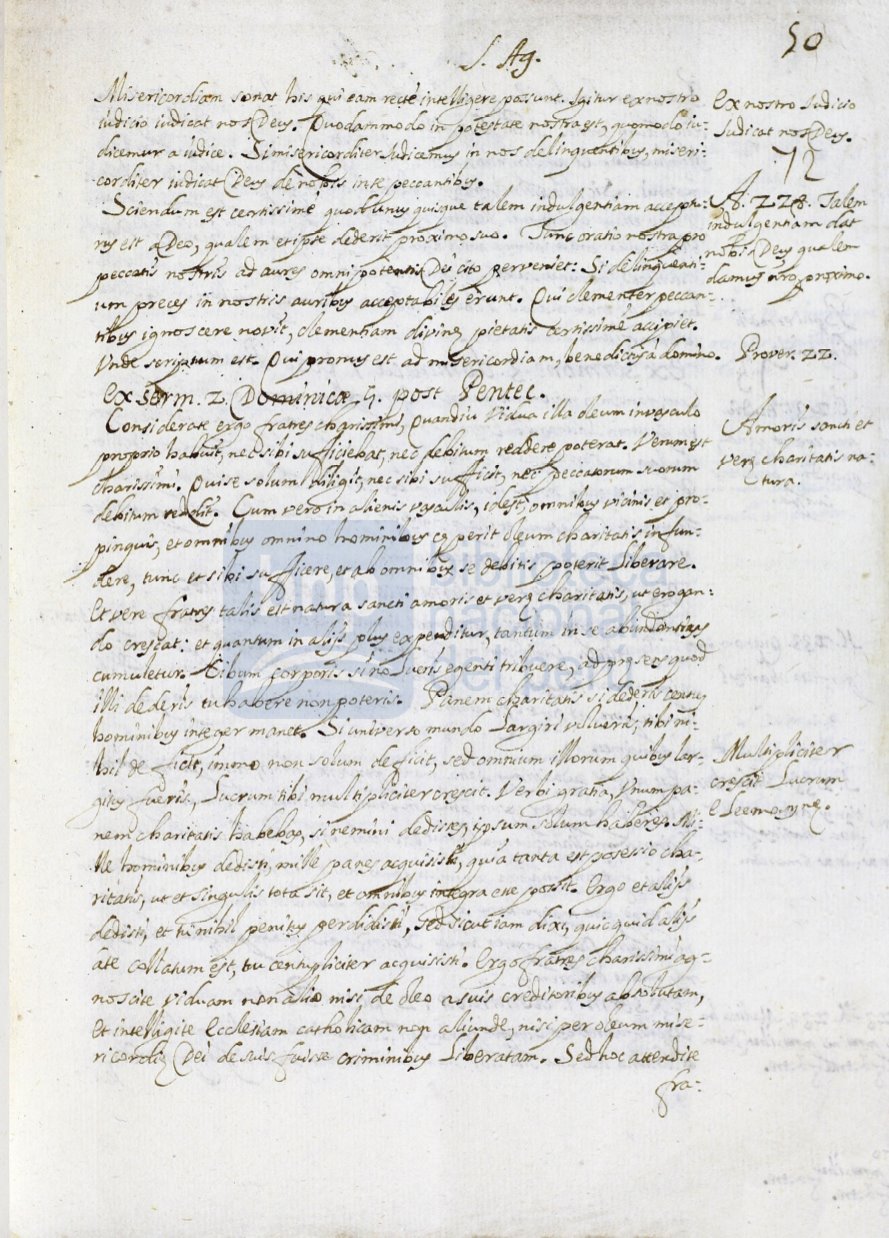 50
S. Ag.
Misericordiam sonat his qui eam recte intelligere possunt. Igitur ex nostro
iudicio iudicat nos Deus. Quodammodo in potestate nostra est, quomodo iu-
dicemur a iudice. Si misericorditer Iudicamus in nos delinquentibus, miseri-
corditer iudicat Deus de nobis in te peccantibus.
Sciendum est certissime quod unus quisque talem indulgentiam acceptu-
rus est a Deo, qualem et ipse dederit proximo suo. Tunc oratio nostra pro
peccatis nostris ad aures omnipotentis Dei cito perveniet: Si delinquenti-
um preces in nostris auribus acceptabiles erunt. Qui clementer peccan-
tibus ignoscere novit, clementiam divinę pietatis certissime accipiet.
Vnde scriptum est. Qui pronus est ad misericordiam, benedicitur a domino.
Ex serm. 2. Dominicæ 4. post Pentec.
Considerate ergo fratres charissimi, Quandiu Vidua illa oleum in vasculo
proprio habuit, nec sibi sufficiebat, nec debitum reddere poterat. Verum est
charissimi. Qui se solum diligit, nec sibi sufficit, nec peccatorum suorum
debitum reddit. Cum vero in alienis vasculis, id est, omnibus vicinis et pro-
pinquis, et omnibus omnino hominibus cęperit oleum charitatis infun-
dere, tunc et sibi sufficere, et ab omnibus se debitis poterit Liberare.
Et vere fratres talis est natura sancti amoris et verę charitatis, ut erogan-
do crescat: et quantum in alijs plus expenditur, tantum in se abundantius
cumuletur. Cibum corporis si volueris egenti tribuere, ad pręsens quod
illi dederis tu habere non poteris. Panem charitatis si dederis centum
hominibus integer manet. Si universo mundo Largiri volueris, tibi ni-
hil deficit, immo non solum deficit, sed omnium illorum quibus lar-
gitus fueris, Lucrum tibi multipliciter crescit. Verbi gratia, Vnum pa-
nem charitatis habebas, si nemini dedisses, ipsum solum haberes. Mi-
lle hominibus dedisti, mille panes acquisisti, quia tanta est possessio cha-
ritatis, ut et singulis tota sit, et omnibus integra esse possit. Ergo et alijs
dedisti, et tu nihil penitus perdidisti, sed sicut iam dixi, quicquid alijs
a te collatum est, tu centupliciter acquisisti. Ergo fratres charissimi ag-
noscite viduam non alio nisi de oleo a suis creditoribus absolutam,
et intelligite Ecclesiam catholicam non aliunde, nisi per oleum mise-
ricordię Dei de suis fuisse criminibus Liberatam. Sed hoc attendite
fra-
Ex nostro Iudicio
Iudicat nos Deus.
72
A. 228. Talem
indulgentiam dat
nobis Deus qualem
damus nro proximo.
Prover. 22.
Amoris sancti et
verę charitatis na-
tura.
Multipliciter
crescit Lucrum
Eleemosynę.
biblioteca
nacional
del perú